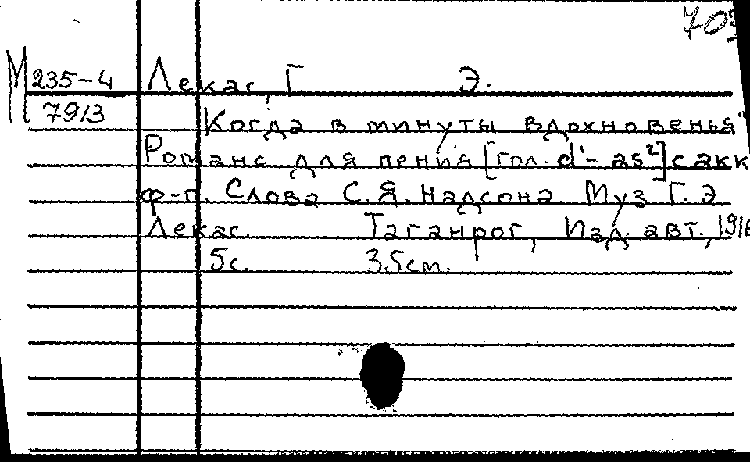 М 235-4 Лекас, Г. Э.
7913
"Когда в минуты вдохновенья"
Романс для пения [гол. d¹- as²] с акк.
ф-п. Слова С. Я. Надсона Муз Г. Э.
Лекас. Таганрог, Изд. авт., 1916
5с. 35см.